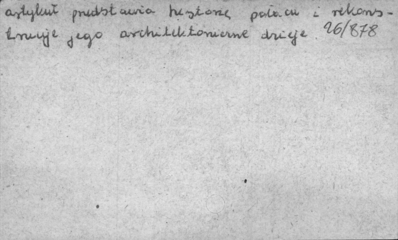 artykuł przedstawia historię pałacu i rekons-
truuje jego architektoniczne dzieje 26/878